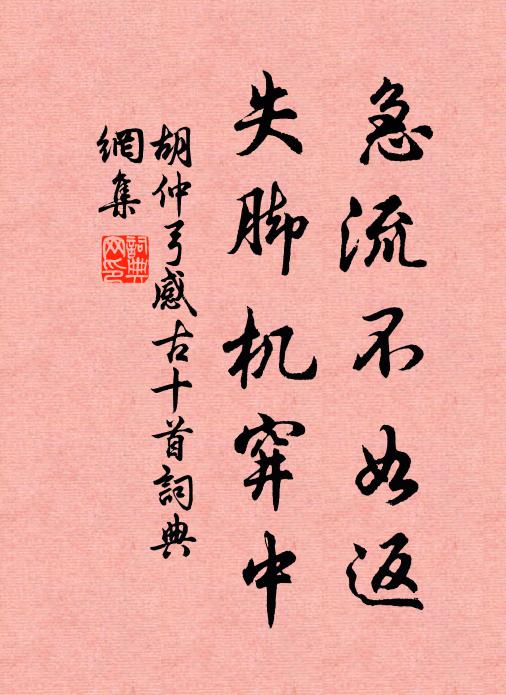 急流不如返
失脚机穽中
胡仲弓感古十首詞典
網集
詞典
网印